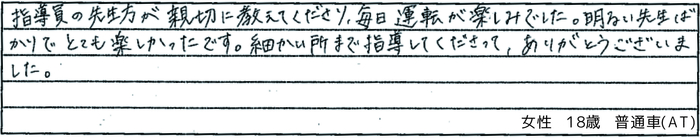 指導員の先生方が親切に教えてくださり、毎日運転が楽しみでした。明るい先生ば
かりでとても楽しかったです。細かい所まで指導してくださって、ありがとうございま
した。
女性　18歳　普通車(AT)